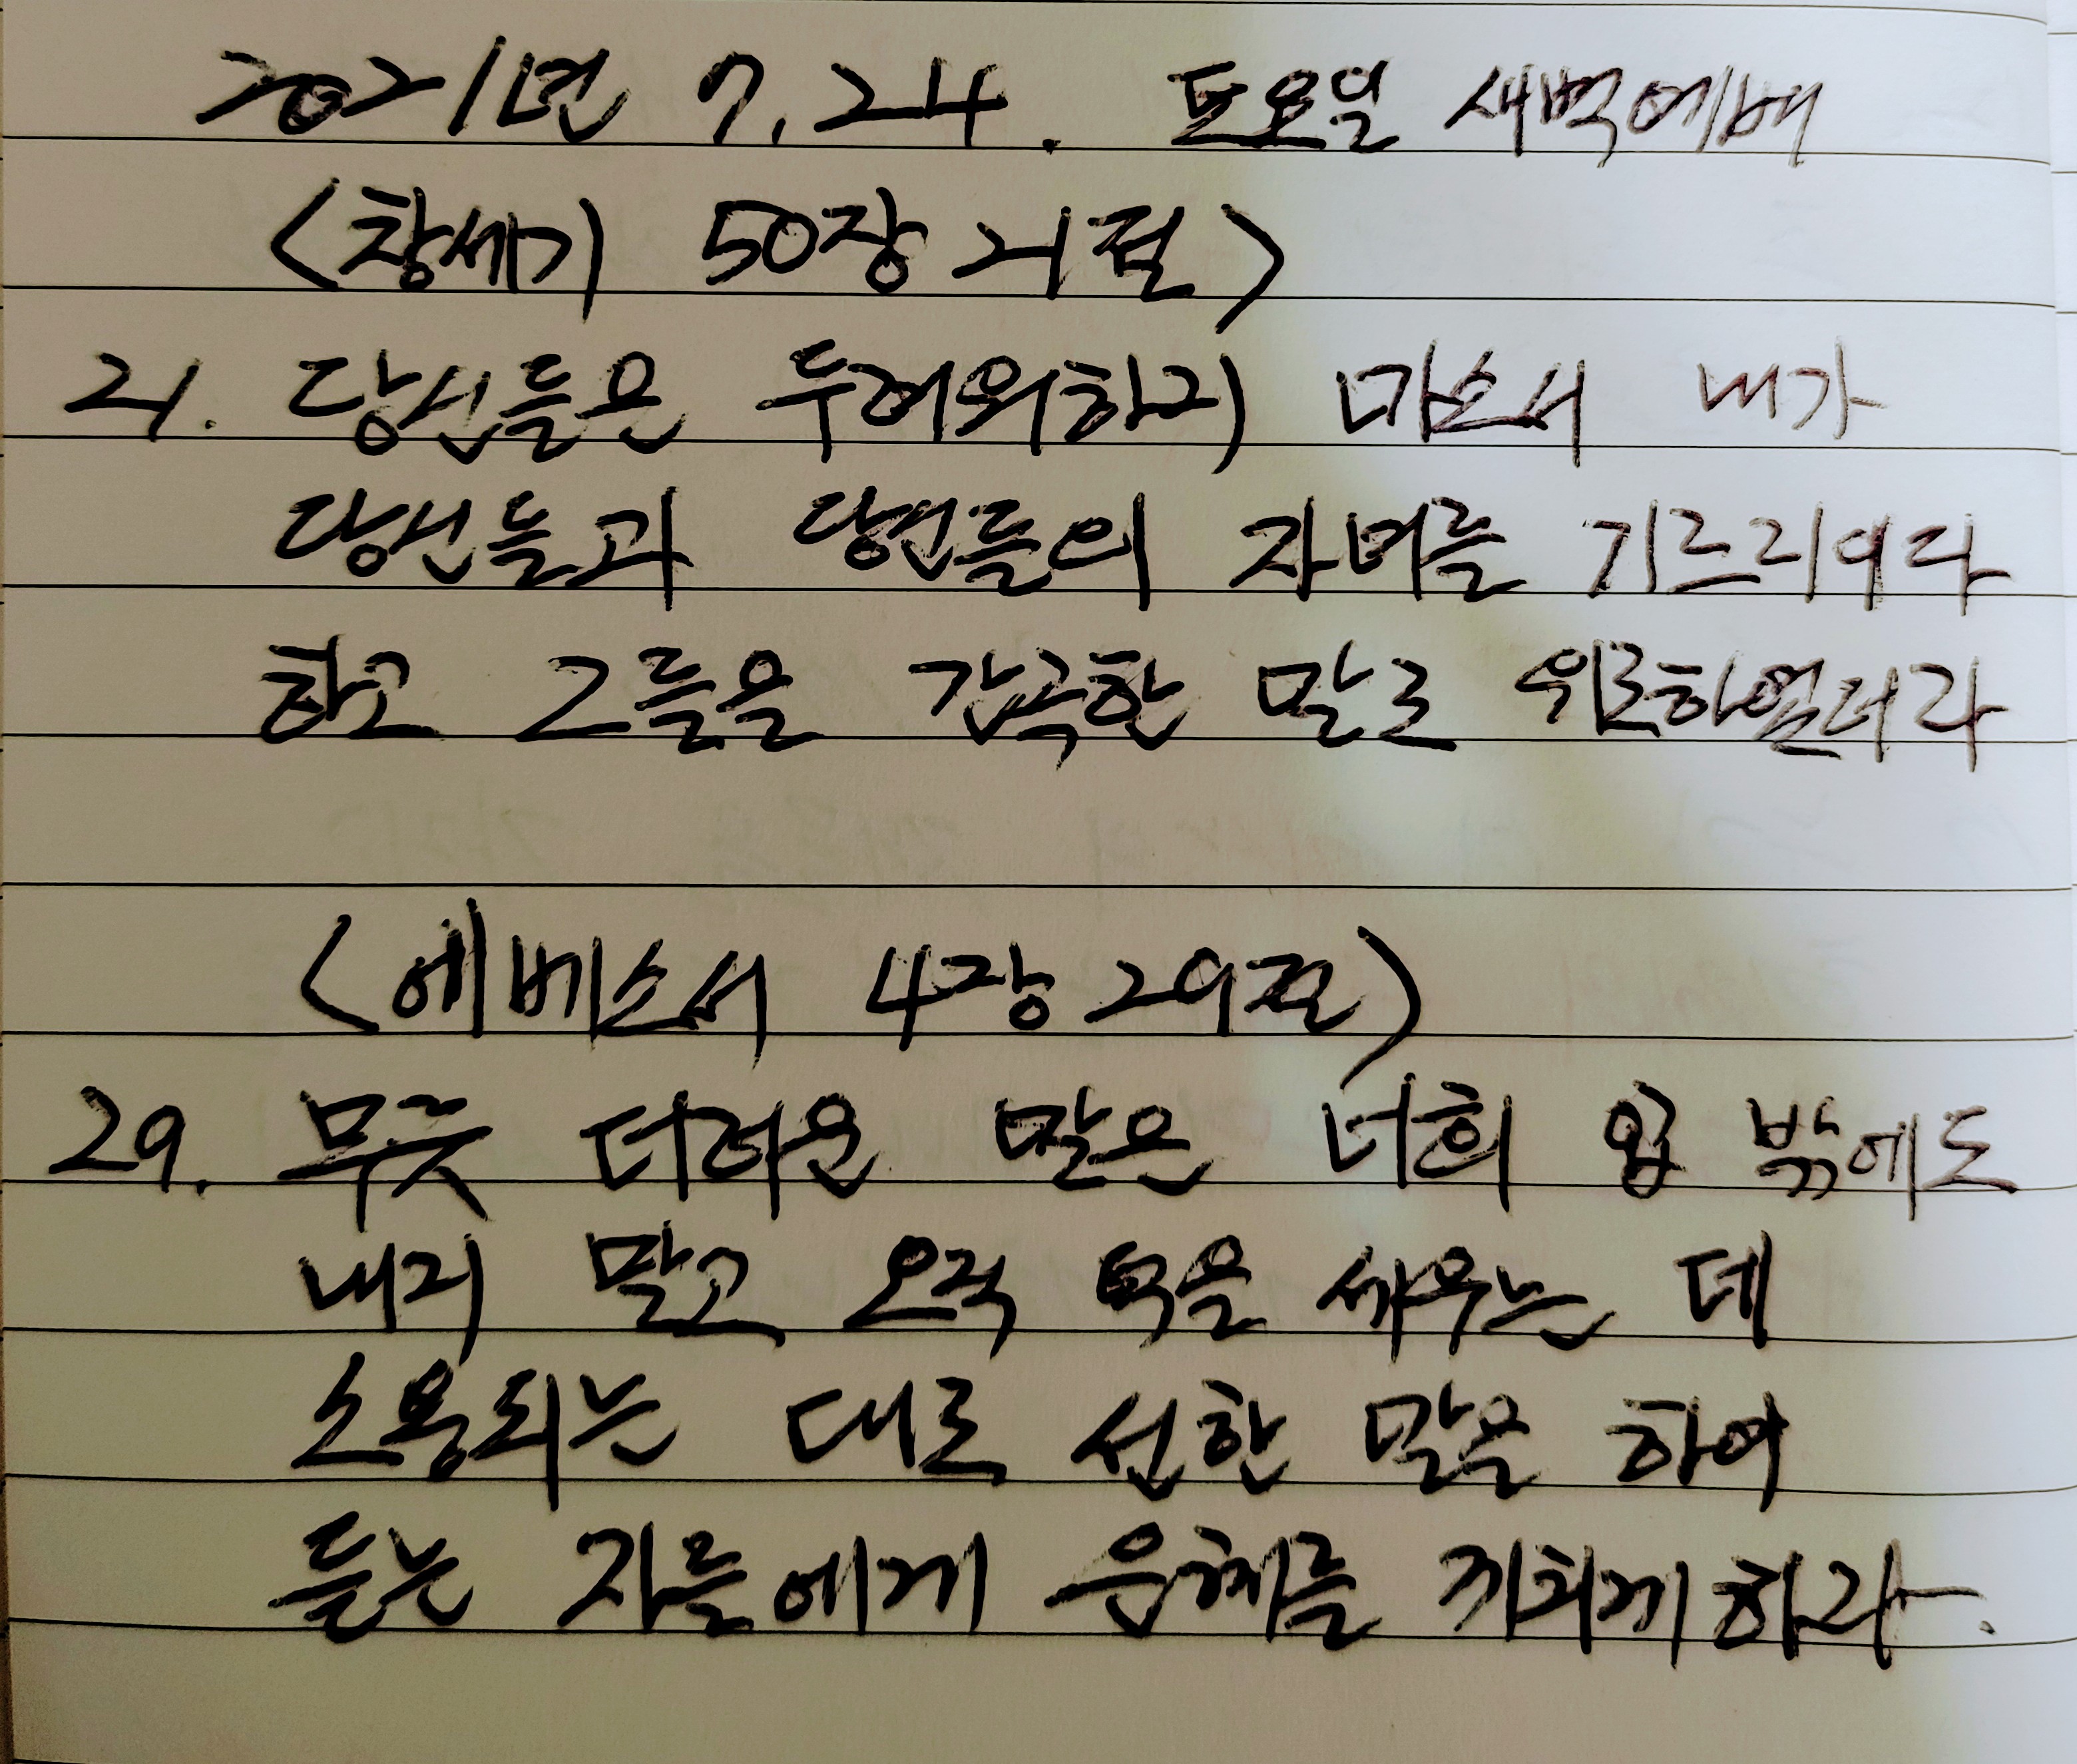 2021년 7.24. 토요일 새벽예배
<창세기 50장 21절>
21. 당신들은 두려워하지 마소서 내가
당신들과 당신들의 자녀를 기르리이다
하고 그들을 간곡한 말로 위로하였더라
<에베소서 4장 29절>
29. 무릇 더러운 말은 너희 입 밖에도
내지 말고 오직 덕을 세우는 데
소용되는 대로 선한 말을 하여
듣는 자들에게 은혜를 끼치게 하라.